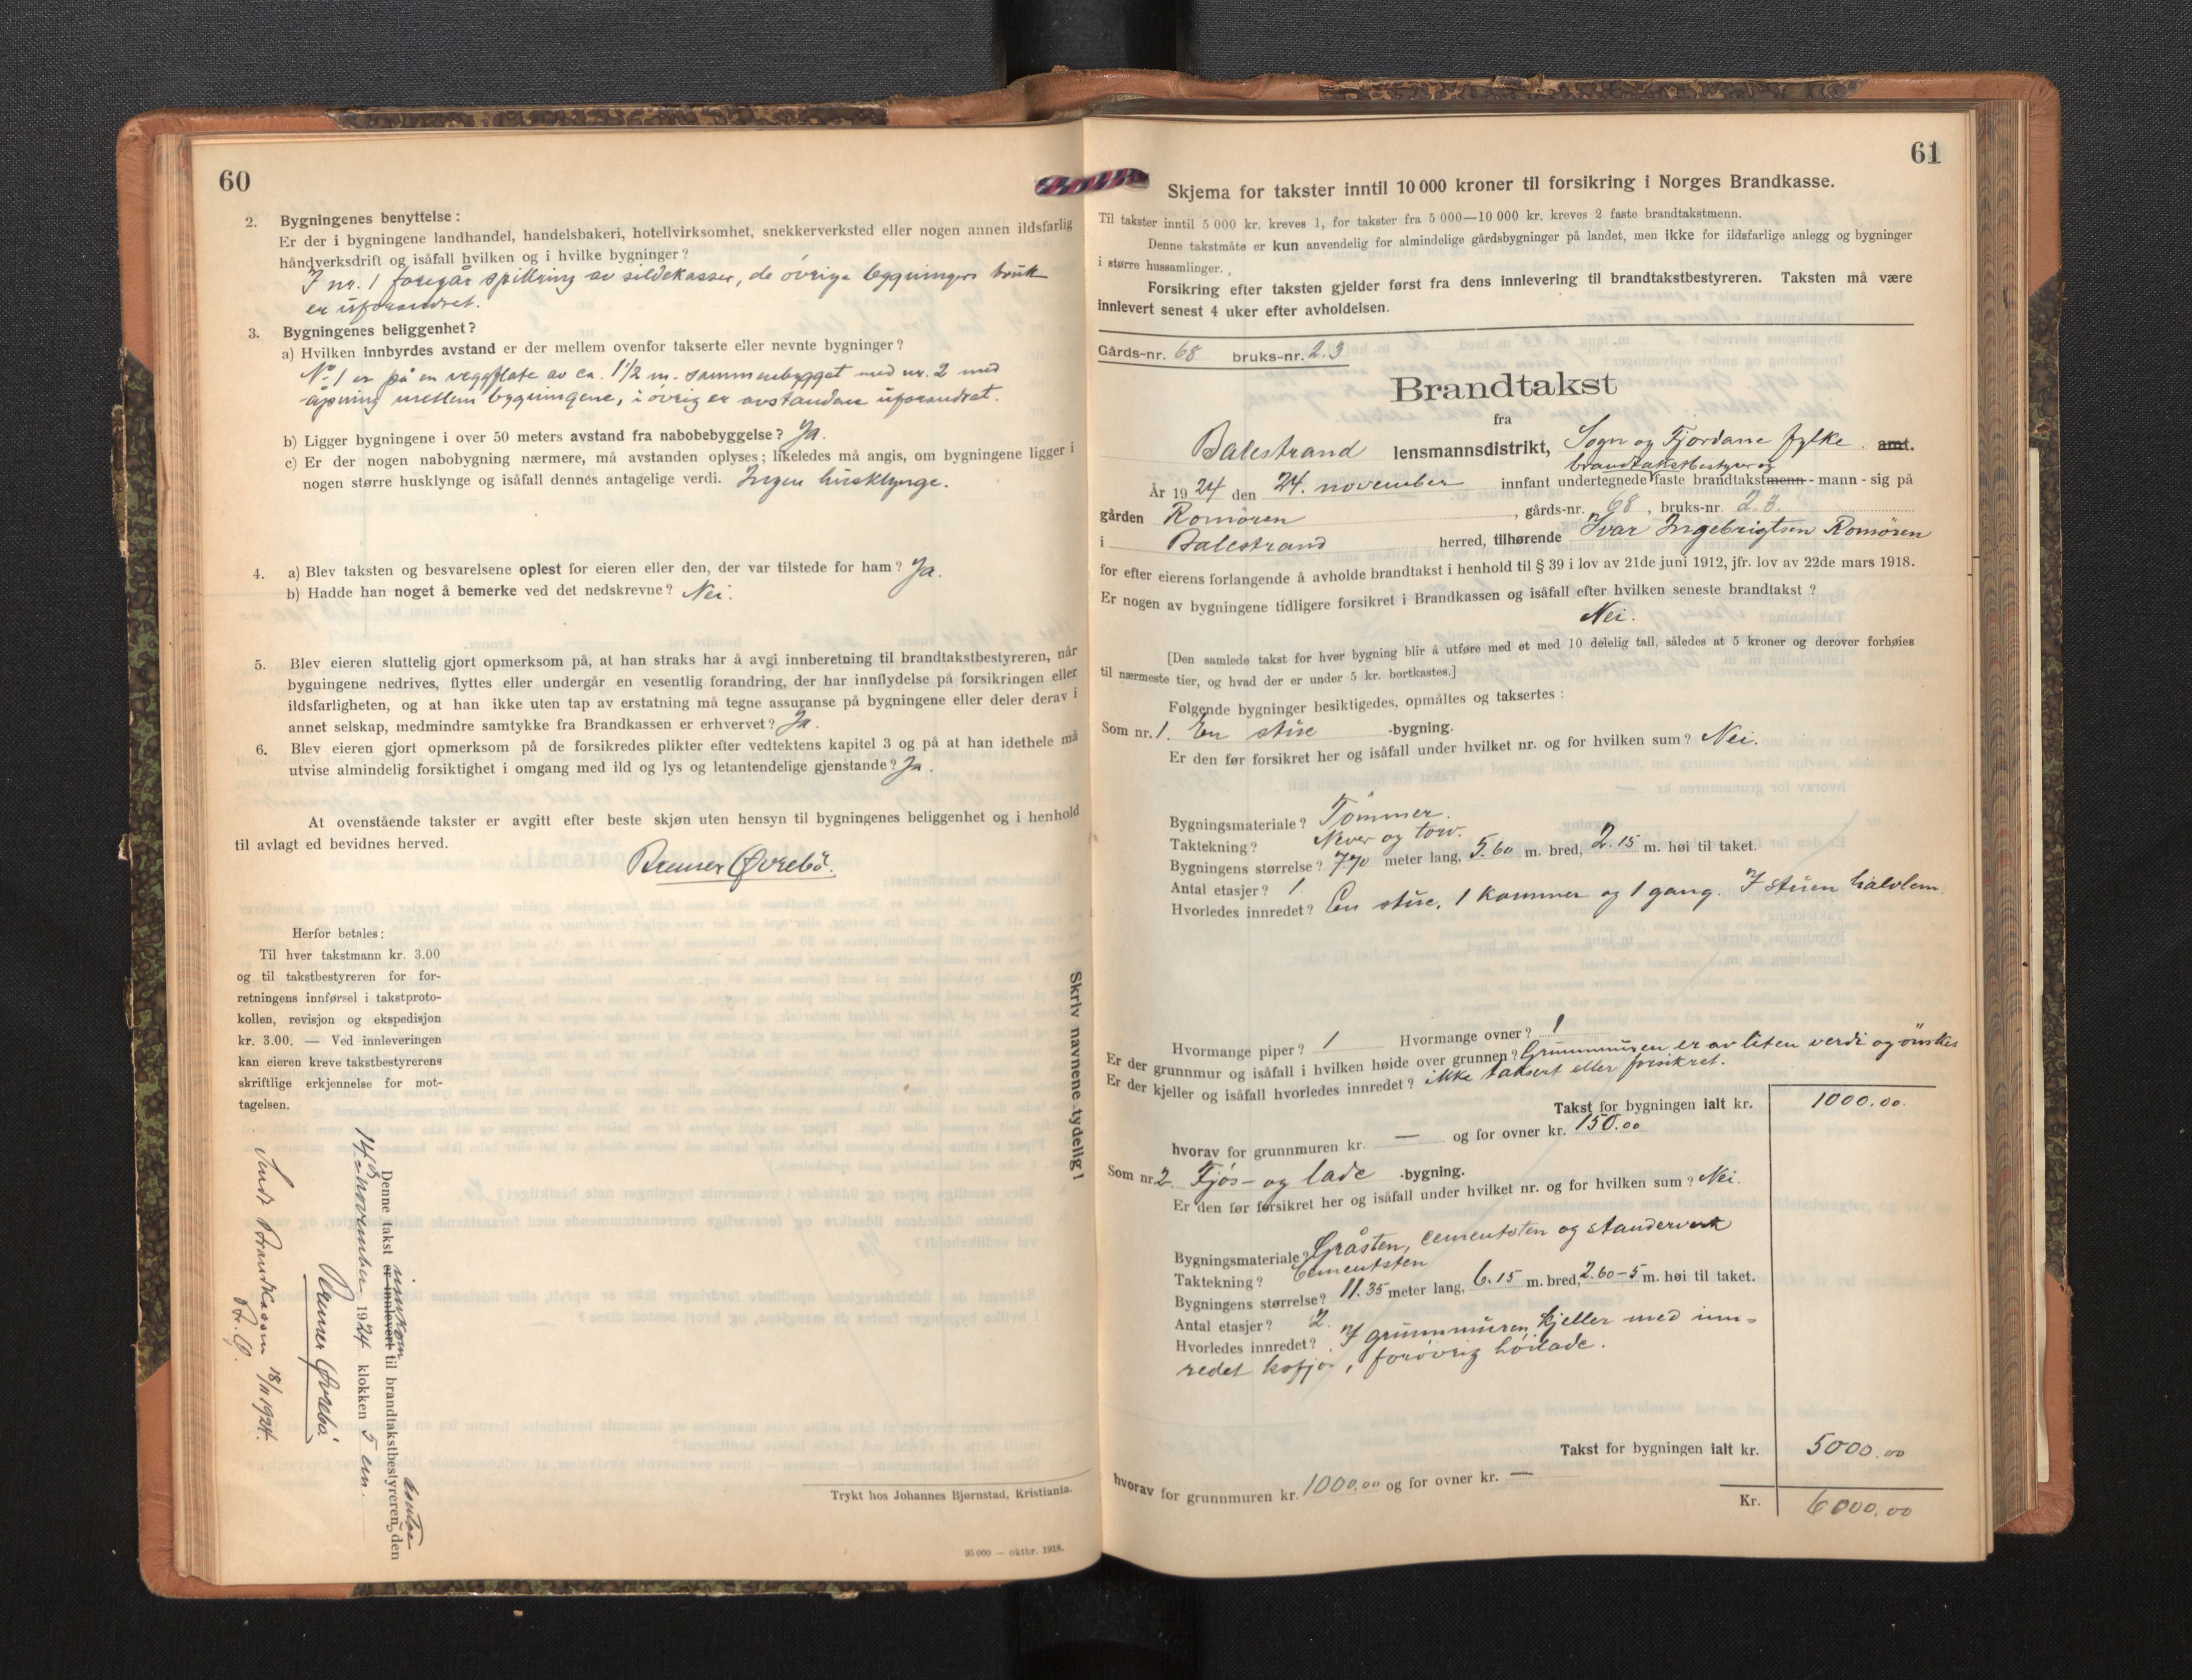 60
2. Bygningenes benyttelse:
Er der i bygningene landhandel, handelsbakeri, hotellvirksomhet, snekkerverksted eller nogen annen ildsfarlig
håndverksdrift og isåfall hvilken og i hvilke bygninger?
I nr. 1 foregår spikring av sildekasser, de øvrige bygningers bruk
er uforandret.
3. Bygningenes beliggenhet?
a) Hvilken innbyrdes avstand er der mellem ovenfor takserte eller nevnte bygninger?
No 1 er på en veggflate av ca. 1 1/2 m. sammenbygget med nr. 2 med
åpning mellem bygningene, i øvrig er avstanden uforandret.
b) Ligger bygningene i over 50 meters avstand fra nabobebyggelse? Ja.
c) Er der nogen nabobygning nærmere, må avstanden oplyses; likeledes må angis, om bygningene ligger i
nogen større husklynge og isåfall dennes antagelige verdi. Ingen husklynge.
4. a) Blev taksten og besvarelsene oplest for eieren eller den, der var tilstede for ham? Ja.
b) Hadde han noget å bemerke ved det nedskrevne? Nei.
5. Blev eieren sluttelig gjort opmerksom på, at han straks har å avgi innberetning til brandtakstbestyreren, når
bygningene nedrives, flyttes eller undergår en vesentlig forandring, der har innflydelse på forsikringen eller
ildsfarligheten, og at han ikke uten tap av erstatning må tegne assuranse på bygningene eller deler derav i
annet selskap, medmindre samtykke fra Brandkassen er erhvervet? Ja.
6. Blev eieren gjort opmerksom på de forsikredes plikter efter vedtektens kapitel 3 og på at han idethele må
utvise almindelig forsiktighet i omgang med ild og lys og letantendelige gjenstande? Ja.
At ovenstående takster er avgitt efter beste skjøn uten hensyn til bygningenes beliggenhet og i henhold
til avlagt ed bevidnes herved.
Øvrebö.
Herfor betales:
Til hver takstmann kr. 3.00
og til takstbestyreren for for-
retningens innførsel i takstproto-
kollen, revisjon og ekspedisjon
kr. 3.00. — Ved innleveringen
kan eieren kreve takstbestyrerens
skriftlige erkjennelse for mot-
tagelsen.
Skriv navnene tydelig!
innkom
Denne takst er innlevert til brandtakstbestyreren, den
14de november 1924 klokken 5 em.
Øvrebö
Sendt Brandkassen 18/11 1924.
Trykt hos Johannes Bjørnstad, Kristiania.
95 000 — oktbr. 1918.
61
Skjema for takster inntil 10 000 kroner til forsikring i Norges Brandkasse.
Til takster inntil 5 000 kr. kreves 1, for takster fra 5 000—10 000 kr. kreves 2 faste brandtakstmenn.
Denne takstmåte er kun anvendelig for almindelige gårdsbygninger på landet, men ikke for ildsfarlige anlegg og bygninger
i større hussamlinger.
Forsikring efter taksten gjelder først fra dens innlevering til brandtakstbestyreren. Taksten må være
innlevert senest 4 uker efter avholdelsen.
Gårds-nr. 68 bruks-nr. 2.3
Brandtakst
fra
Balestrand lensmannsdistrikt, Sogn og Fjordane fylke. amt.
brandtakstbestyrer og
År 1924 den 24. november innfant undertegnede faste brandtakstmenn - mann - sig på
gården Romören, gårds-nr. 68, bruks-nr. 2.3.
i Balestrand herred, tilhørende Ivar Ingebrigtsen Romören
for efter eierens forlangende å avholde brandtakst i henhold til § 39 i lov av 21de juni 1912, jfr. lov av 22de mars 1918.
Er nogen av bygningene tidligere forsikret i Brandkassen og isåfall efter hvilken seneste brandtakst?
Nei.
[Den samlede takst for hver bygning blir å utføre med et med 10 delelig tall, således at 5 kroner og derover forhøies
til nærmeste tier, og hvad der er under 5 kr. bortkastes.]
Følgende bygninger besiktigedes, opmåltes og taksertes:
Som nr. 1. En stue -bygning.
Er den før forsikret her og isåfall under hvilket nr. og for hvilken sum? Nei.
Bygningsmateriale? Tömmer.
Taktekning? Never og torv.
Bygningens størrelse? 7.70 meter lang, 5.60 m. bred, 2.15 m. høi til taket.
Antal etasjer? 1.
Hvorledes innredet? En stue, 1 kammer og 1 gang. I stuen halvlem.
Hvormange piper? 1 Hvormange ovner? 1
Er der grunnmur og isåfall i hvilken høide over grunnen? Grunnmuren er av liten verdi og önskes
Er der kjeller og isåfall hvorledes innredet? ikke taksert eller forsikret.
Takst for bygningen ialt kr. 1000.00.
hvorav for grunnmuren kr. — og for ovner kr. 150.00
Som nr. 2. Fjös- og lade -bygning.
Er den før forsikret her og isåfall under hvilket nr. og for hvilken sum? Nei.
Bygningsmateriale? Gråsten, cementsten og standerverk
Taktekning? Cementsten
Bygningens størrelse? 11.35 meter lang, 6.15 m. bred, 2.60-5 m. høi til taket.
Antal etasjer? 2.
Hvorledes innredet? I grunnmuren kjeller med inn-
redet kofjös, forövrig höilade.
Takst for bygningen ialt kr. 5000.00
hvorav for grunnmuren kr. 1000.00 og for ovner kr. —
Kr. 6000.00